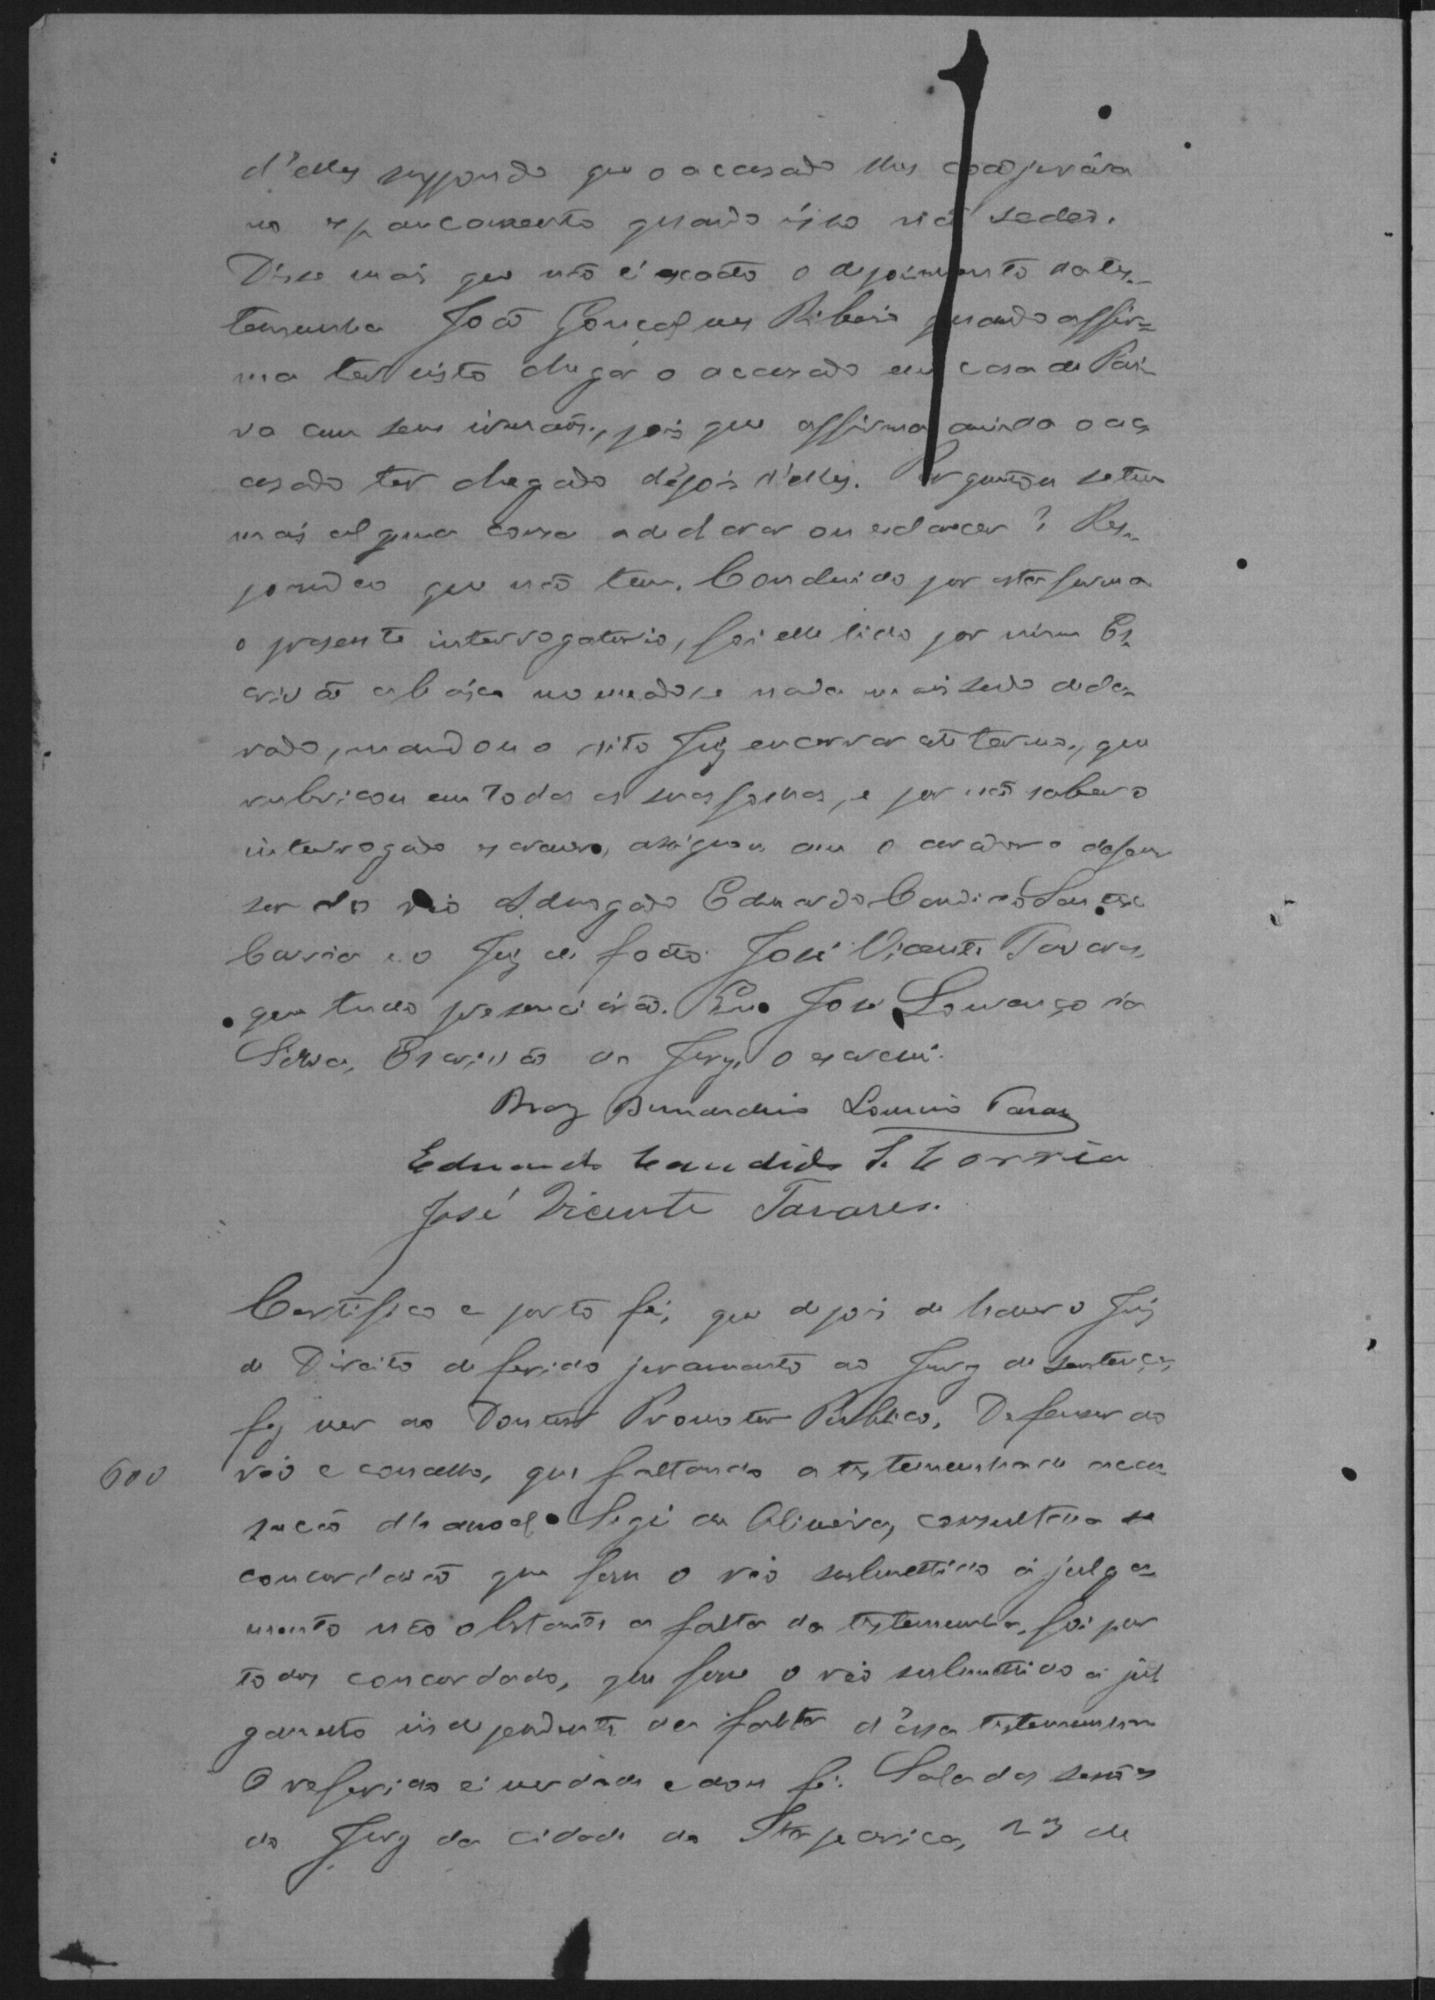 d'elles suppondo que o accusado lhes coadjuvára
no espancamento quando isso não se deo.
Disse mais que não é exacto o depoimento da tes-
temunha João Gonçalves Ribeiro quando affir-
ma ter visto chegar o accusado em casa de Pai-
va com seus irmãos, pois que affirma ainda o ac
cusado ter chegado depois d'elles. Perguntou se tem
mais alguma cousa a declarar ou esclarecer? Res-
pondeo que não tem. Concluido por esta forma
o presente interrogatorio, foi elle lido por mim Es-
crivão abaixo nomeado, e nada mais sendo decla-
rado, mandou o dito Juiz encerrar este termo, que
rubricou em todas as suas folhas, e por não saber o
interrogado escrever, assignou com o curador e defen
sor do réo Advogado Eduardo Candido
Correia e o Juiz de facto José Vicente Tavares,
que tudo presenciárão. Eu José Lourenço da
Silva, Escrivão do Jury, o escrevi.
Braz Bernardino Loureiro Tavares
Eduardo Candido S. Correia
José Vicente Tavares.
Certifico e porto fé, que depois de haver o Juiz
de Direito deferido juramento ao Jury de sentença,
fez ver ao Doutor Promotor Publico, Defensor do
600 réo e conselho, que faltando a testemunha de accu
sação de Oliveira, consultava se
concordavão que fosse o réo submettido á julga-
mento não obstante a falta da testemunha, foi por
todos concordado, que fosse o réo submettido a jul
gamento independente da falta d'essa testemunha
O referido é verdade e dou fé. Sala das sessões
do Jury da cidade de Itaparica, 23 de